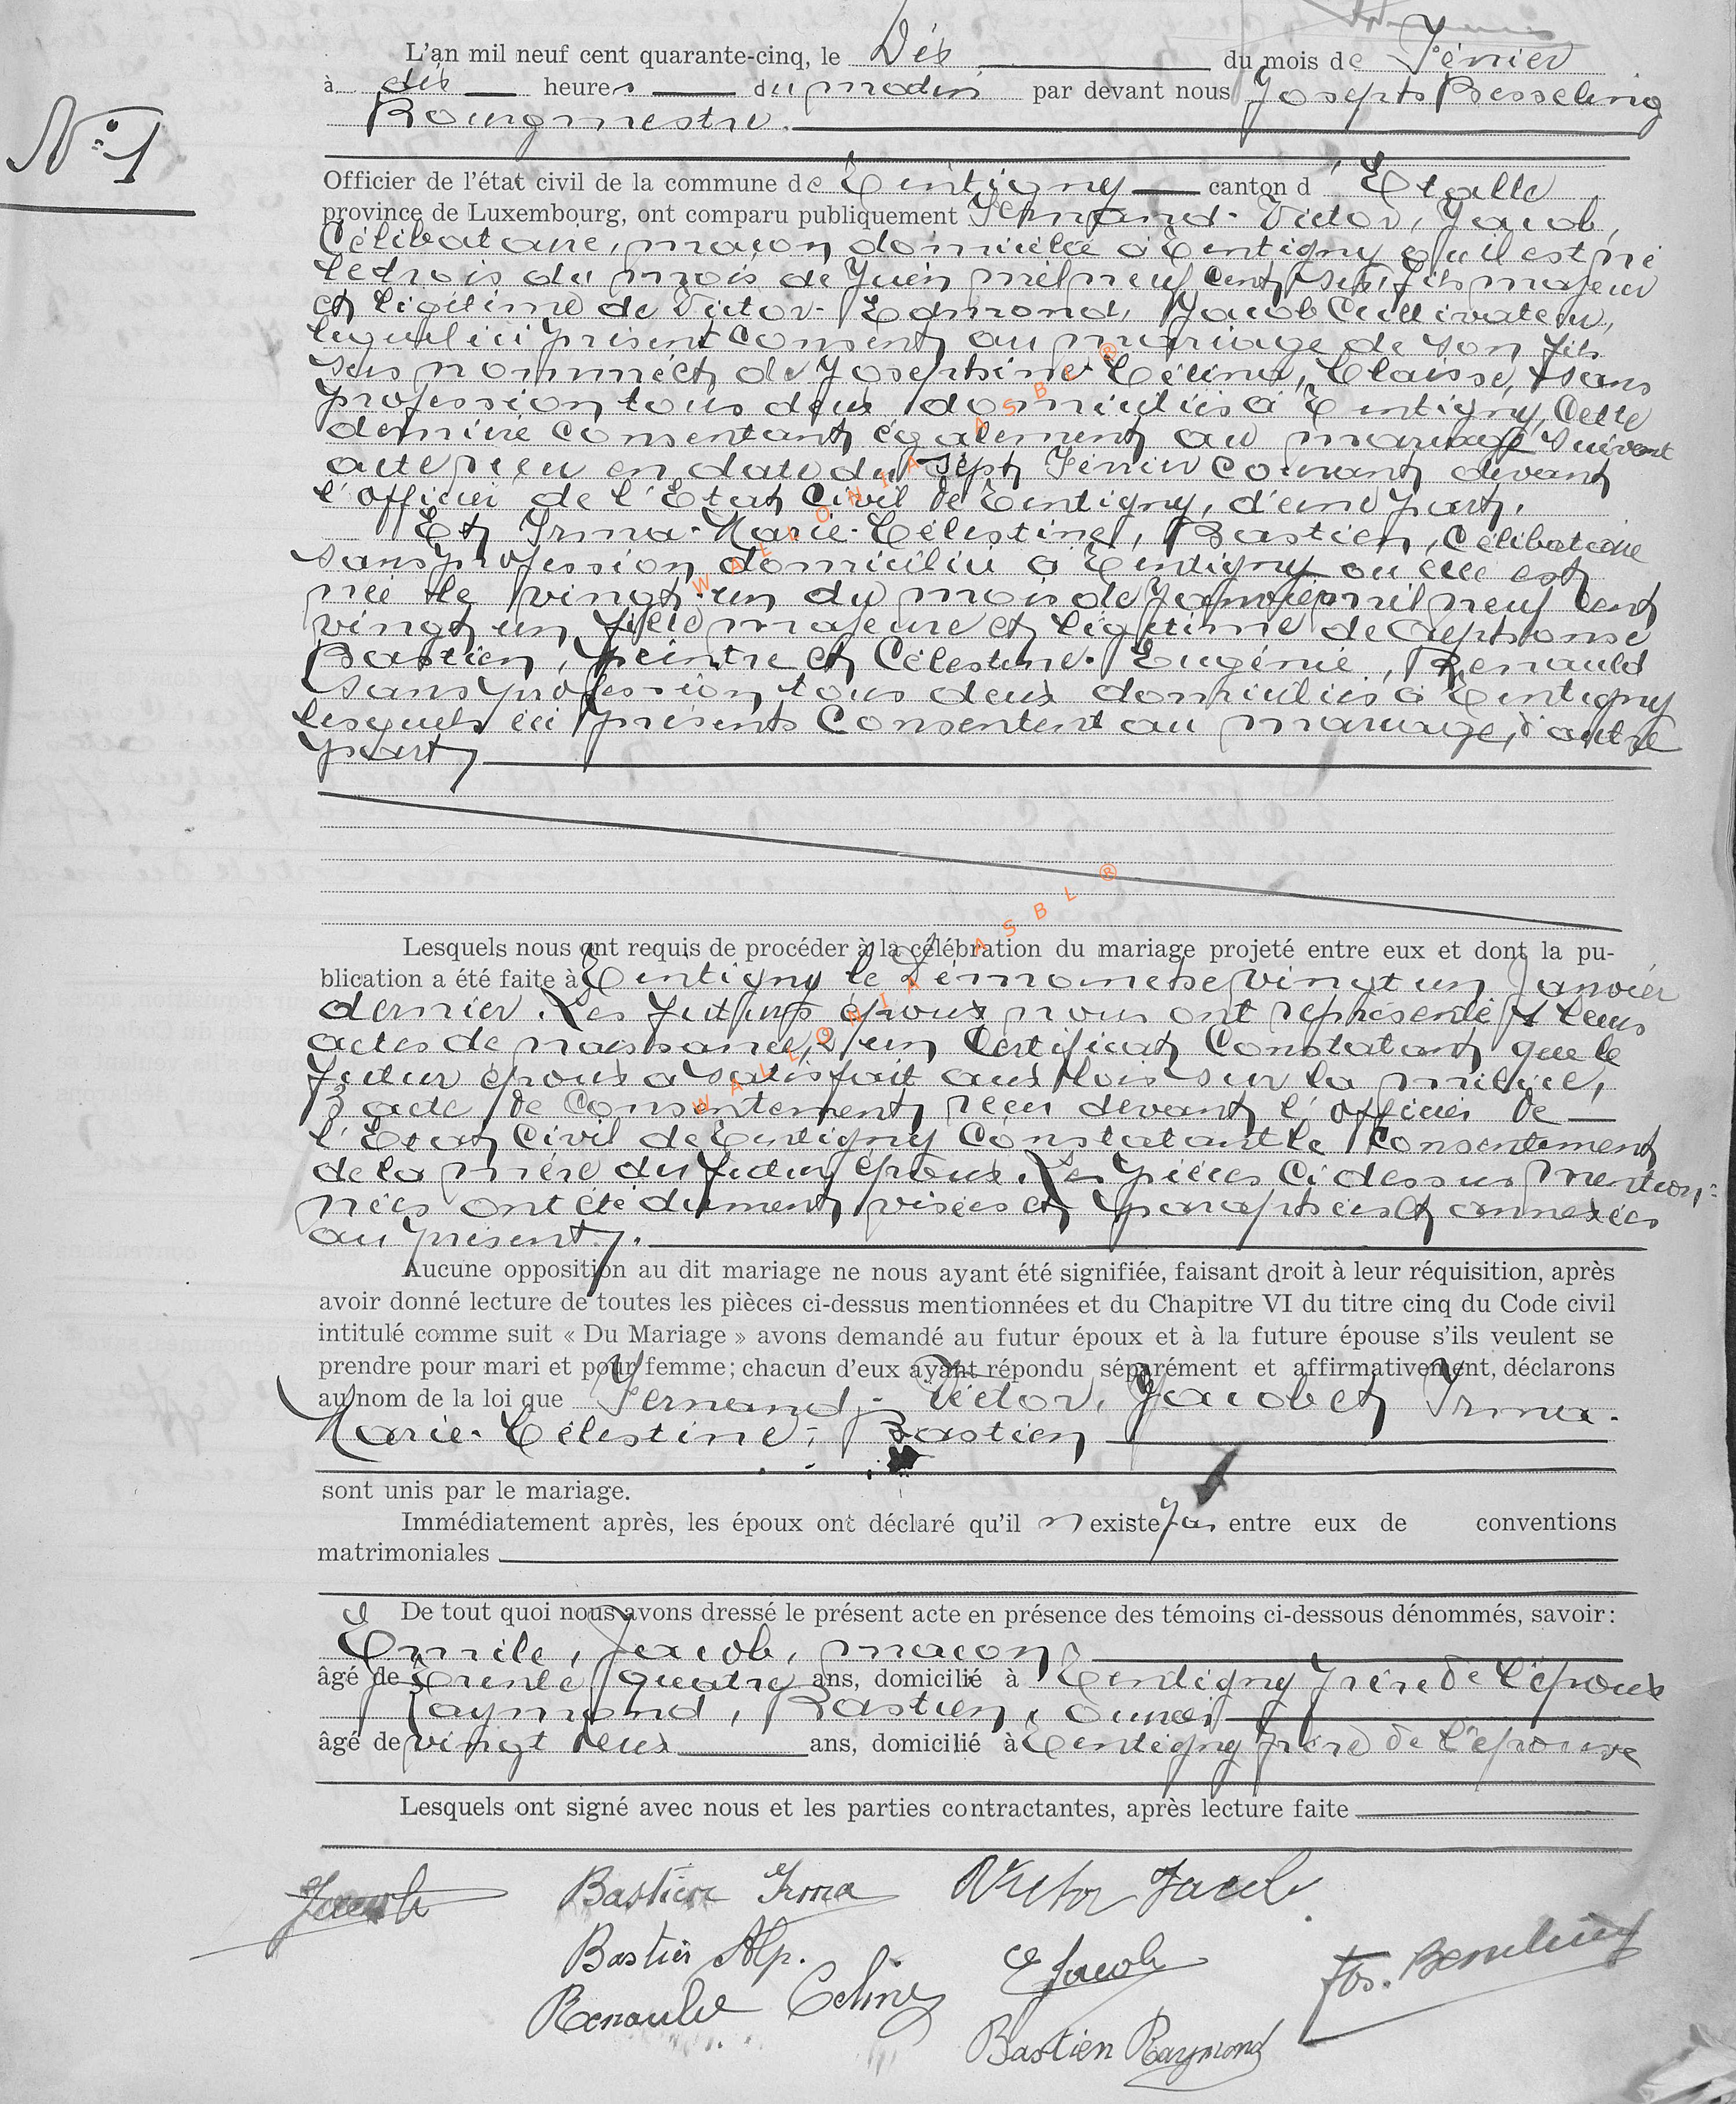 L'an mil neuf cent quarante-cinq, le Dix du mois de Février
à dix heures du matin par devant nous Joseph Besseling
Bourgmestre.
N° 1
Officier de l'état civil de la commune de Tintigny canton d'Etalle
province de Luxembourg, ont comparu publiquement Fernand-Victor, Jacob,
Célibataire, maçon domicilié à Tintigny où il est né
le trois du mois de Juin mil neuf cent fils majeur
et légitime de Victor-Edmond, Jacob Cultivateur,
lequel ici présent consent au mariage de son fils
sus nommé et de Joséphine-Célina, Claisse, sans
profession tous deux domiciliés à Tintigny, Cette
dernière consentant également au mariage suivant
acte reçu en date du sept Février courant devant
l'officier de l'Etat Civil de Tintigny, d'une part.
Et Irma-Marie-Célestine, Bastien, Célibataire
sans profession domiciliée à Tintigny où elle est
née le vingt-un du mois de Janvier mil neuf cent
vingt un fille majeure et légitime de Alphonse
Bastien, peintre et Célestine-Eugénie, Renauld
sans profession tous deux domiciliés à Tintigny
lesquels ici présents consentent au mariage, d'autre
part
Lesquels nous ont requis de procéder à la célébration du mariage projeté entre eux et dont la pu-
blication a été faite à Tintigny le Dimanche vingt un Janvier
dernier. Les futurs époux nous ont représenté 1 leurs
actes de naissance, 2 un Certificat Constatant que le
futur époux a satisfait aux lois sur la milice,
3 acte de Consentement reçu devant l'officier de
l'Etat Civil de Tintigny Constatant le Consentement
de la mère du futur époux. Les pièces ci dessus mention-
nées ont été dument visées et paraphées et annexées
au présent.
Aucune opposition au dit mariage ne nous ayant été signifiée, faisant droit à leur réquisition, après
avoir donné lecture de toutes les pièces ci-dessus mentionnées et du Chapitre VI du titre cinq du Code civil
intitulé comme suit « Du Mariage » avons demandé au futur époux et à la future épouse s'ils veulent se
prendre pour mari et pour femme; chacun d'eux ayant répondu séparément et affirmativement, déclarons
au nom de la loi que Fernand-Victor, Jacob et Irma-
Marie-Célestine, Bastien
sont unis par le mariage.
Immédiatement après, les époux ont déclaré qu'il n'existe pas entre eux de conventions
matrimoniales
De tout quoi nous avons dressé le présent acte en présence des témoins ci-dessous dénommés, savoir:
Emile, Jacob, maçon
âgé de trente quatre ans, domicilié à Tintigny frère de l'époux
Raymond, Bastien,
âgé de vingt deux ans, domicilié à Tintigny frère de l'épouse
Lesquels ont signé avec nous et les parties contractantes, après lecture faite
Jacob Bastien Irma Victor Jacob
Bastien Alp. E Jacob Jos. Besseling
Renauld Céline
Bastien Raymond
WALLONIA ASBL ®
WALLONIA ASBL ®